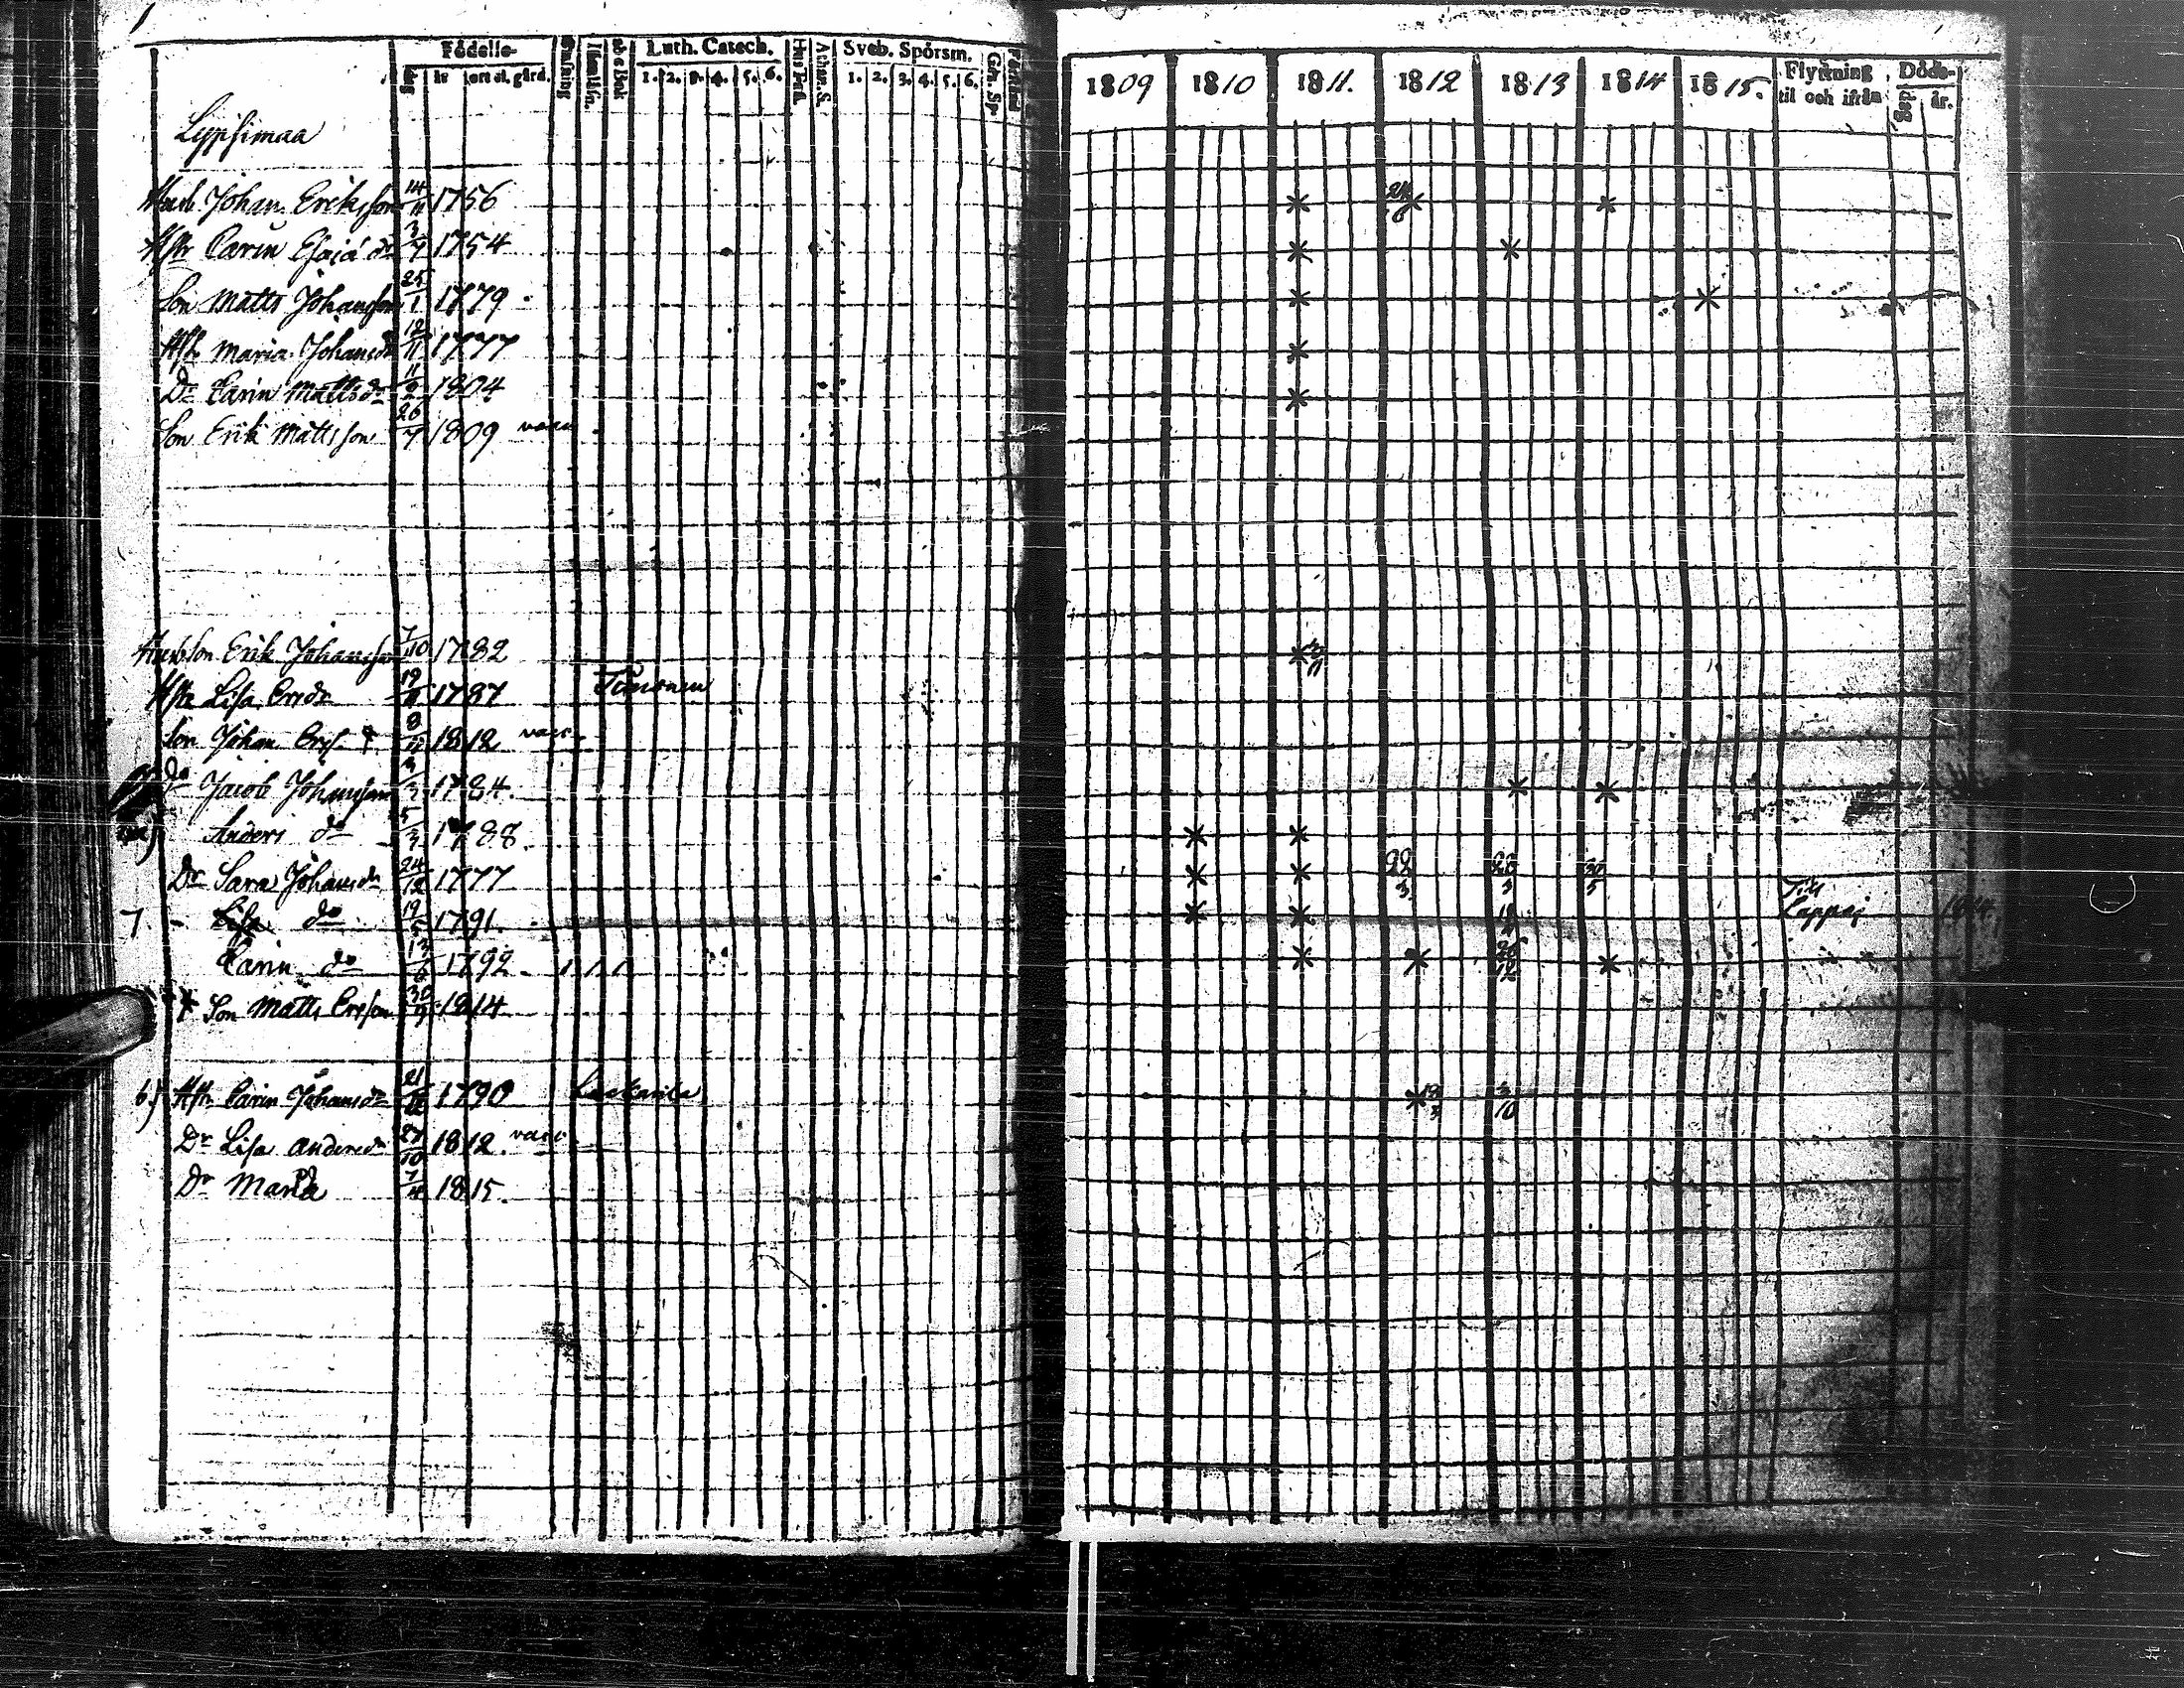 Födelse-
dag år ort el. gård. Luth. Catech. Sveb. Spörsm.
1. 2. 3. 4. 5. 6. Hus Tafl. Athan. S. 1. 2. 3. 4. 5. 6. Gen. Sp.
1809 1810 1811. 1812 1813 1814 1815. Flyttning til och ifrån Döds- dag år.
Lypsimaa
Johan Eriksson 14/11 1756 24/6
Hstr Carin Esaiä dr 3/7 1754
Son Matts Johansson 25/1 1779
Hstr Maria Johansdr 12/11 1777
Dr Carin Mattsdr 11/2 1804
Son Erik Mattsson 26/7 1809 vacc
Son Erik Johansson 7/10 1782
Hstr Lisa Ersdr 1787
Son Johan Ers. 1812 vacc
Do Jacob Johansson 1784.
Anders do 5/3 1788.
Dr Sara Johansdr 24/12 1777 22/3 28/3 30/5
7 - Lisa do 19/5 1791. Till Cappej
Carin do 13/6 1792 1 1 1 26/12
† Son Matts Ersson 30/9 1814
b) Hstr Carin Johansdr 1790 3/10
Dr Lisa Andersdr 27/10 1812. vacc.
Dr Maria 7/4 1815.